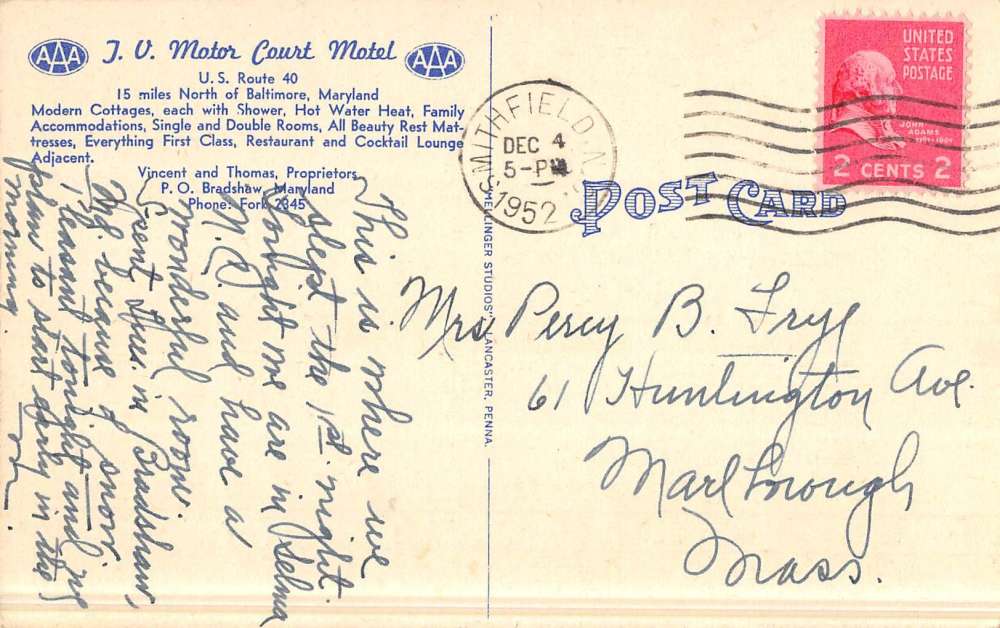 AAA T. V. Motor Court Motel AAA
U.S. Route 40
15 miles North of Baltimore, Maryland
Modern Cottages, each with Shower, Hot Water Heat, Family
Accommodations, Single and Double Rooms, All Beauty Rest Mat-
tresses, Everything First Class, Restaurant and Cocktail Lounge
Adjacent.
Vincent and Thomas, Proprietors
P. O. Bradshaw, Maryland
Phone: Fork 2345
This is where we
slept the 1st. night.
Tonight we are in Selma
N.C. and have a
wonderful room.
Spent Thurs in Bradshaw,
Md. because of snow
Pleasant tonight and
plan to start early in the
morning
SMITHFIELD N.
DEC 4
5-PM
1952
UNITED
STATES
POSTAGE
JOHN
ADAMS
2 CENTS 2
POST CARD
MELLINGER STUDIOS, LANCASTER, PENNA.
Mrs Percy B. Frye
61 Huntington Ave.
Marlborough
Mass.